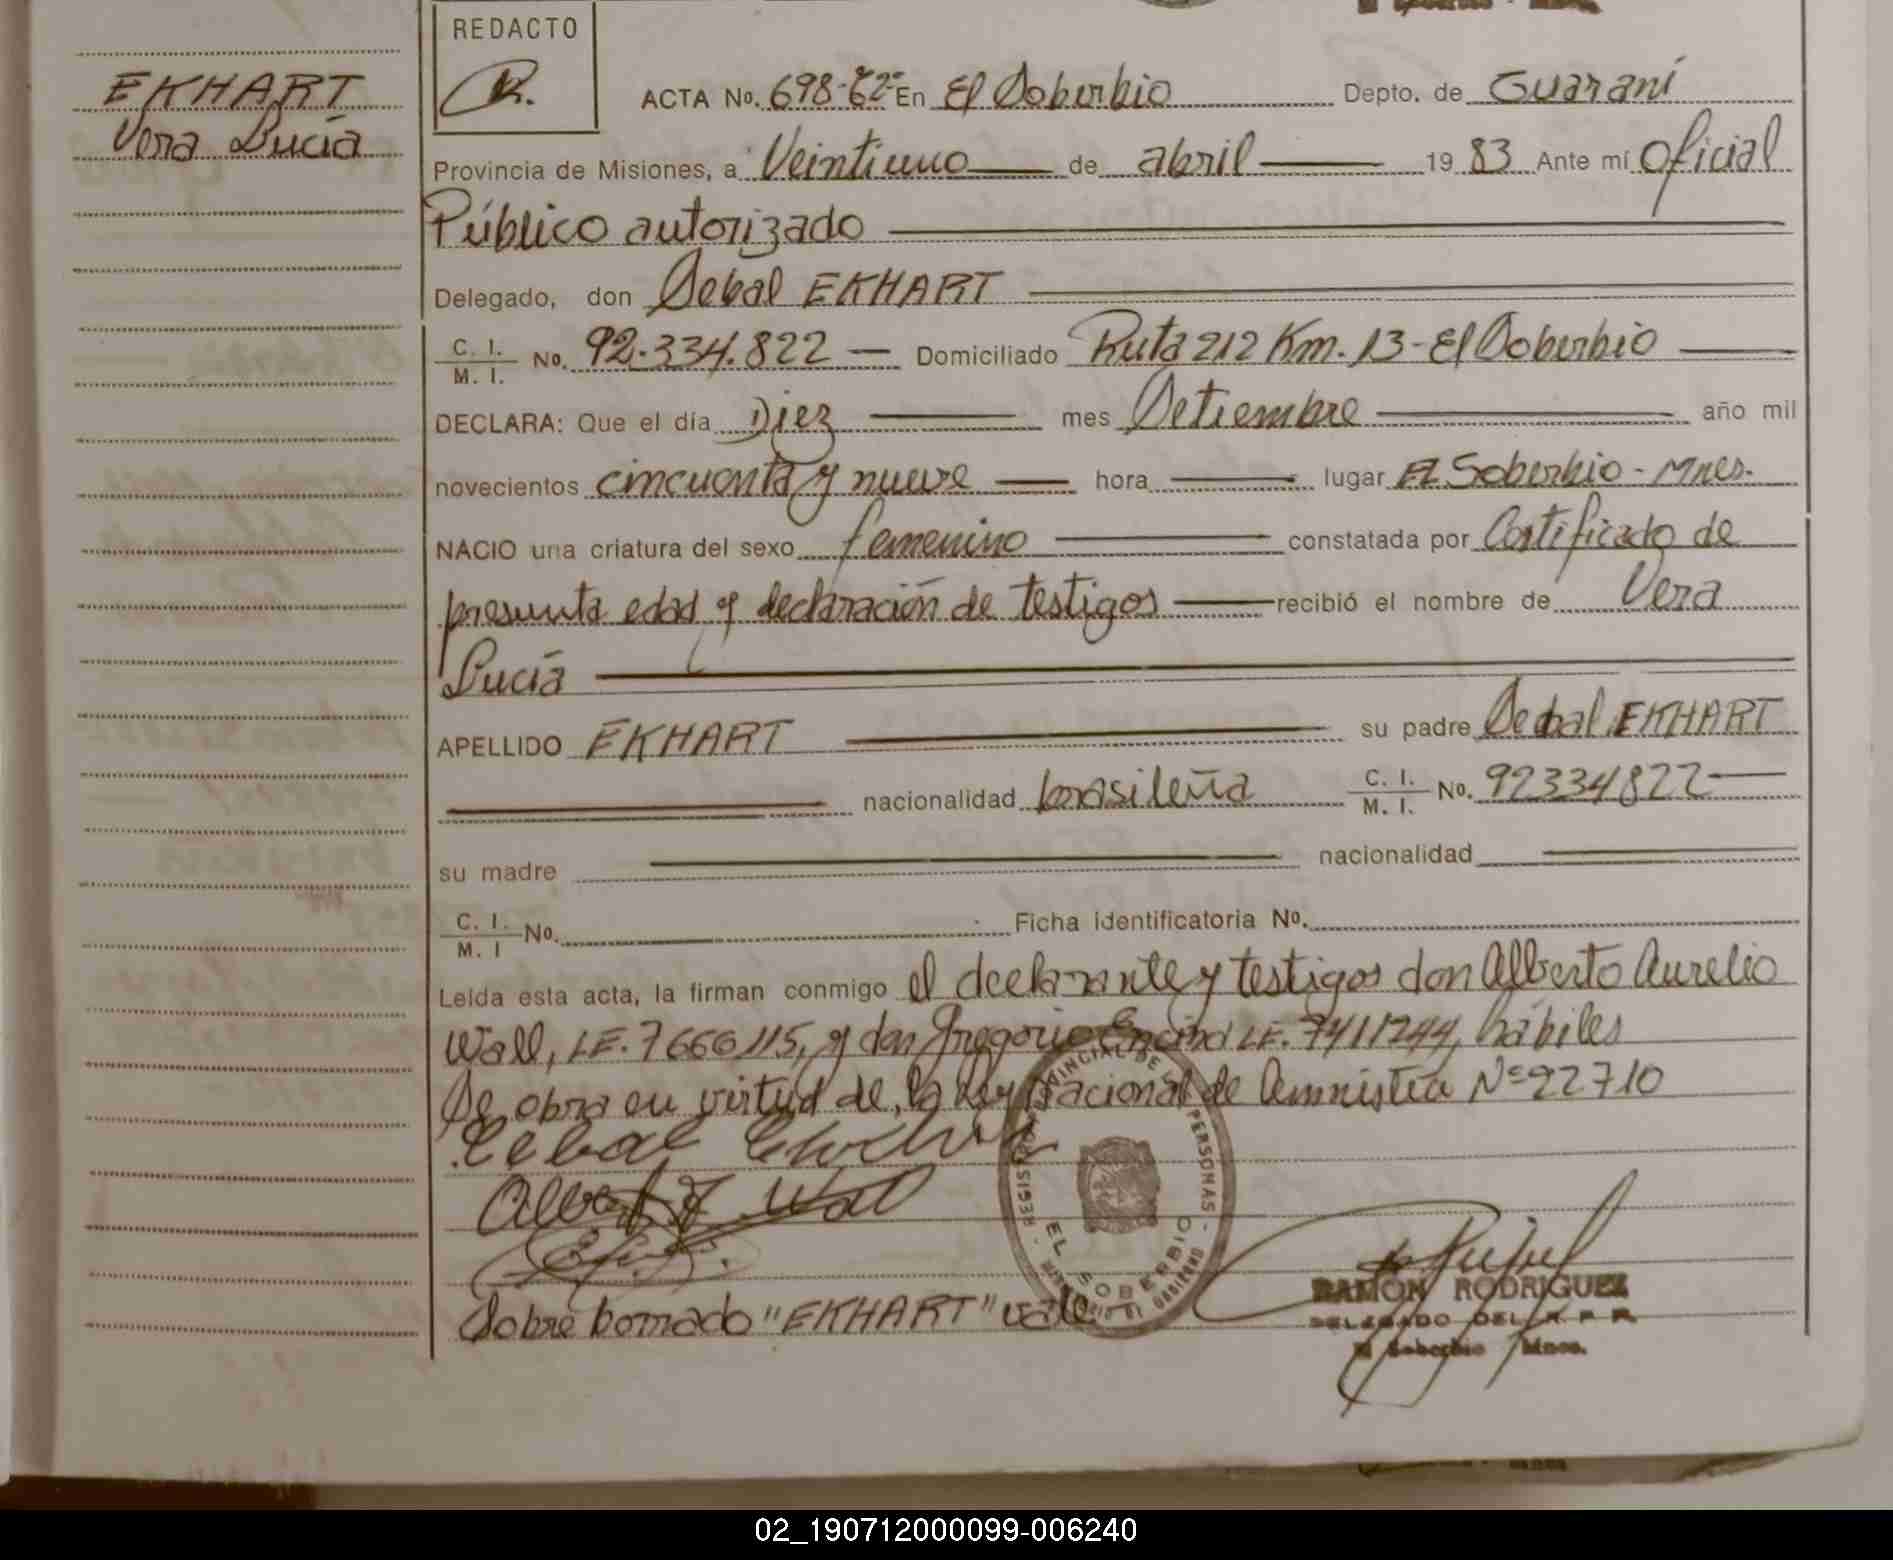 EKHART
Vera Lucía
REDACTO
R.
ACTA No. 698- En El Soberbio Depto. de Guaraní
Provincia de Misiones, a Veintiuno de abril 19 83 Ante mí Oficial
Público autorizado
Delegado, don Sebal EKHART
C. I.
M. I. No. 92.334.822 Domiciliado Ruta 212 Km. 13 - El Soberbio
DECLARA: Que el día Diez mes Setiembre año mil
novecientos cincuenta y nueve hora lugar El Soberbio - Mnes.
NACIO una criatura del sexo femenino constatada por Certificado de
presunta edad y declaración de testigos recibió el nombre de Vera
Lucía
APELLIDO EKHART su padre Sebal EKHART
nacionalidad brasileña C. I.
M. I. No. 92334822
su madre nacionalidad
C. I.
M. I No. Ficha identificatoria No.
Leída esta acta, la firman conmigo el declarante y testigos don Alberto Aurelio
Wall, LE. 7666115, y don Gregorio Encina LE. 7411244, hábiles
Se obra en virtud de la Ley Nacional de Amnistía Nº 22710
REGISTRO PROVINCIAL DE LAS PERSONAS
EL SOBERBIO
Sobre borrado "EKHART" vale
RAMON RODRIGUEZ
DELEGADO DEL R. P. P.
El Soberbio Mnes.
02_190712000099-006240